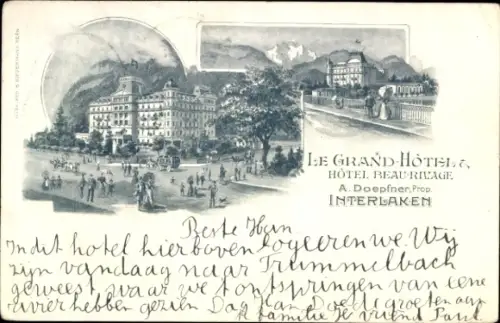 LE GRAND-HÔTEL &
HÔTEL BEAU-RIVAGE
A. Doepfner, Prop.
INTERLAKEN
Beste Han
In dit hotel hierboven logeeren we. Wij
zijn vandaag naar Trummelbach
geweest, waar we t ontspringen van eene
rivier hebben gezien Dag Han Doe de groeten aan
familie Je vriend Paul